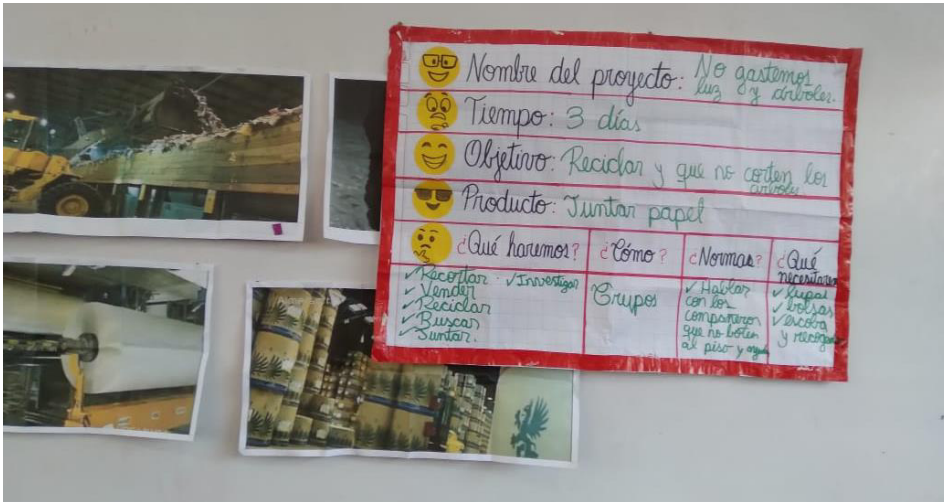 Nombre del proyecto: No gastemos
luz y árboles.
Tiempo: 3 días
Objetivo: Reciclar y que no corten los
árboles
Producto: Juntar papel
¿Qué haremos?
✓ Recortar - ✓ Investigar
✓ Vender
✓ Reciclar
✓ Buscar
✓ Juntar.
¿Cómo?
Grupos
¿Normas?
✓ Hablar
con los
compañeros
que no boten
al piso y
¿Qué
necesitaremos
✓ lupas
✓ bolsas
✓ escoba
y recogedor